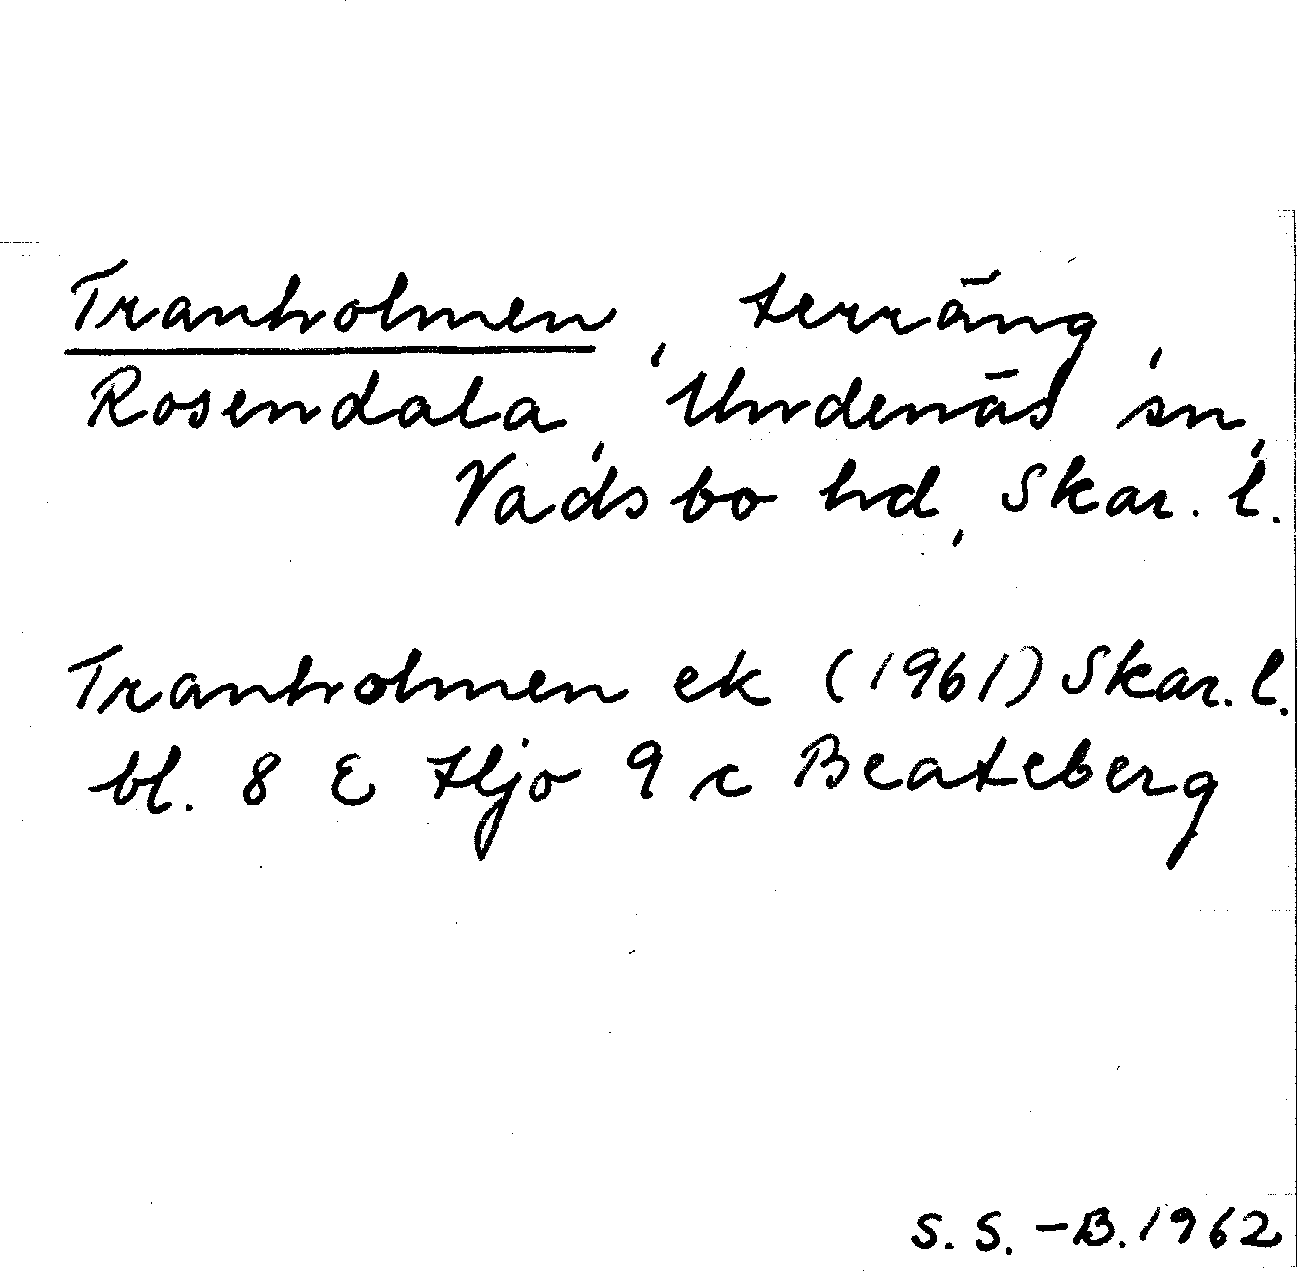 Tranholmen, terräng,
Rosendala, Undenäs sn,
Vadsbo hd, Skar. l.
Tranholmen ek (1961) Skar. l.
bl. 8 E Hjo 9 c Beateberg
S. S. -B. 1962